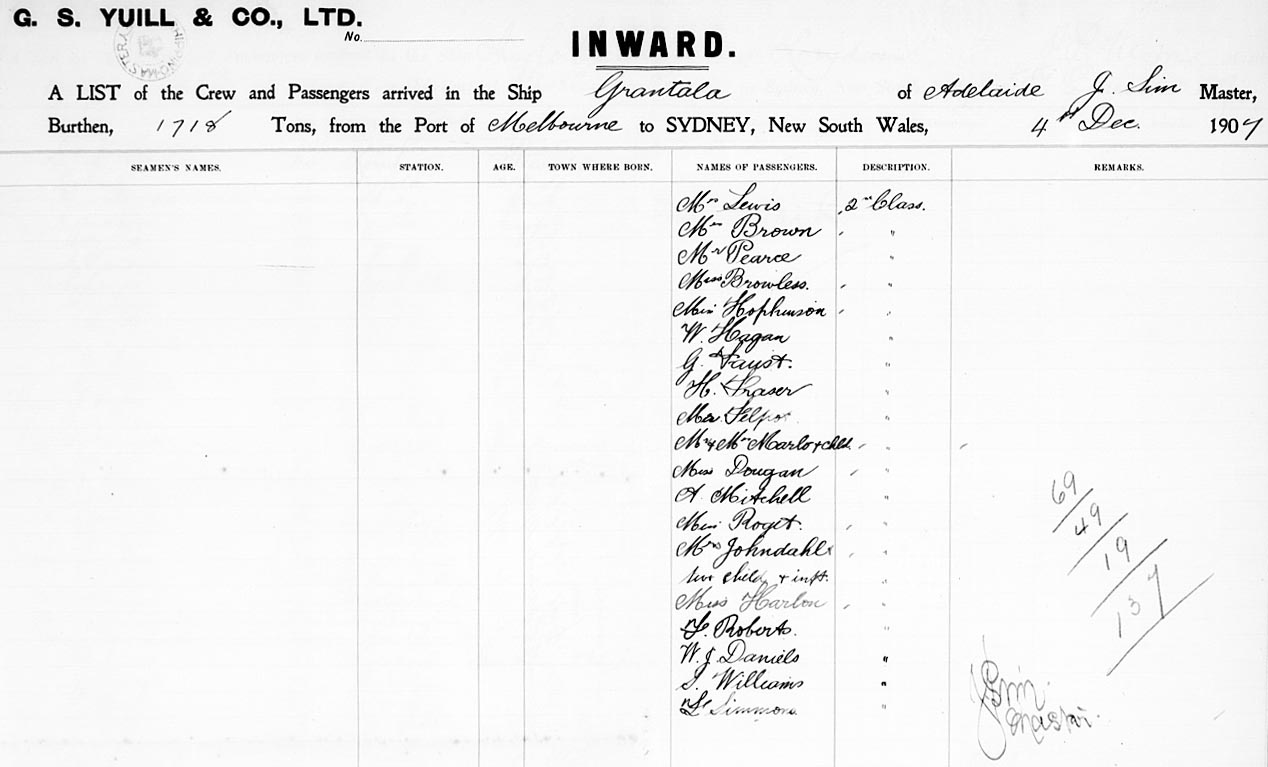 G. S. YUILL & CO., LTD.
No.
INWARD.
A LIST of the Crew and Passengers arrived in the Ship Grantala of Adelaide J. Sim Master,
Burthen, 1718 Tons, from the Port of Melbourne to SYDNEY, New South Wales, 4th Dec. 1907
SEAMEN'S NAMES. STATION. AGE. TOWN WHERE BORN. NAMES OF PASSENGERS. DESCRIPTION. REMARKS.
Mrs Lewis 2nd Class.
Brown "
Mr Pearce "
Miss Browless. "
Miss Hophinson "
W. Hagan "
G. Faust. "
H. Fraser "
"
Mr & Mrs Marlo & child. "
Miss Dougan "
A. Mitchell "
Miss Roget. "
Mrs Johndahl & "
two child & inft. "
Miss Harlon "
F. Roberts. "
W. J. Daniels "
Williams "
Simmons. "
69
49
19
137
J Sim
Master.